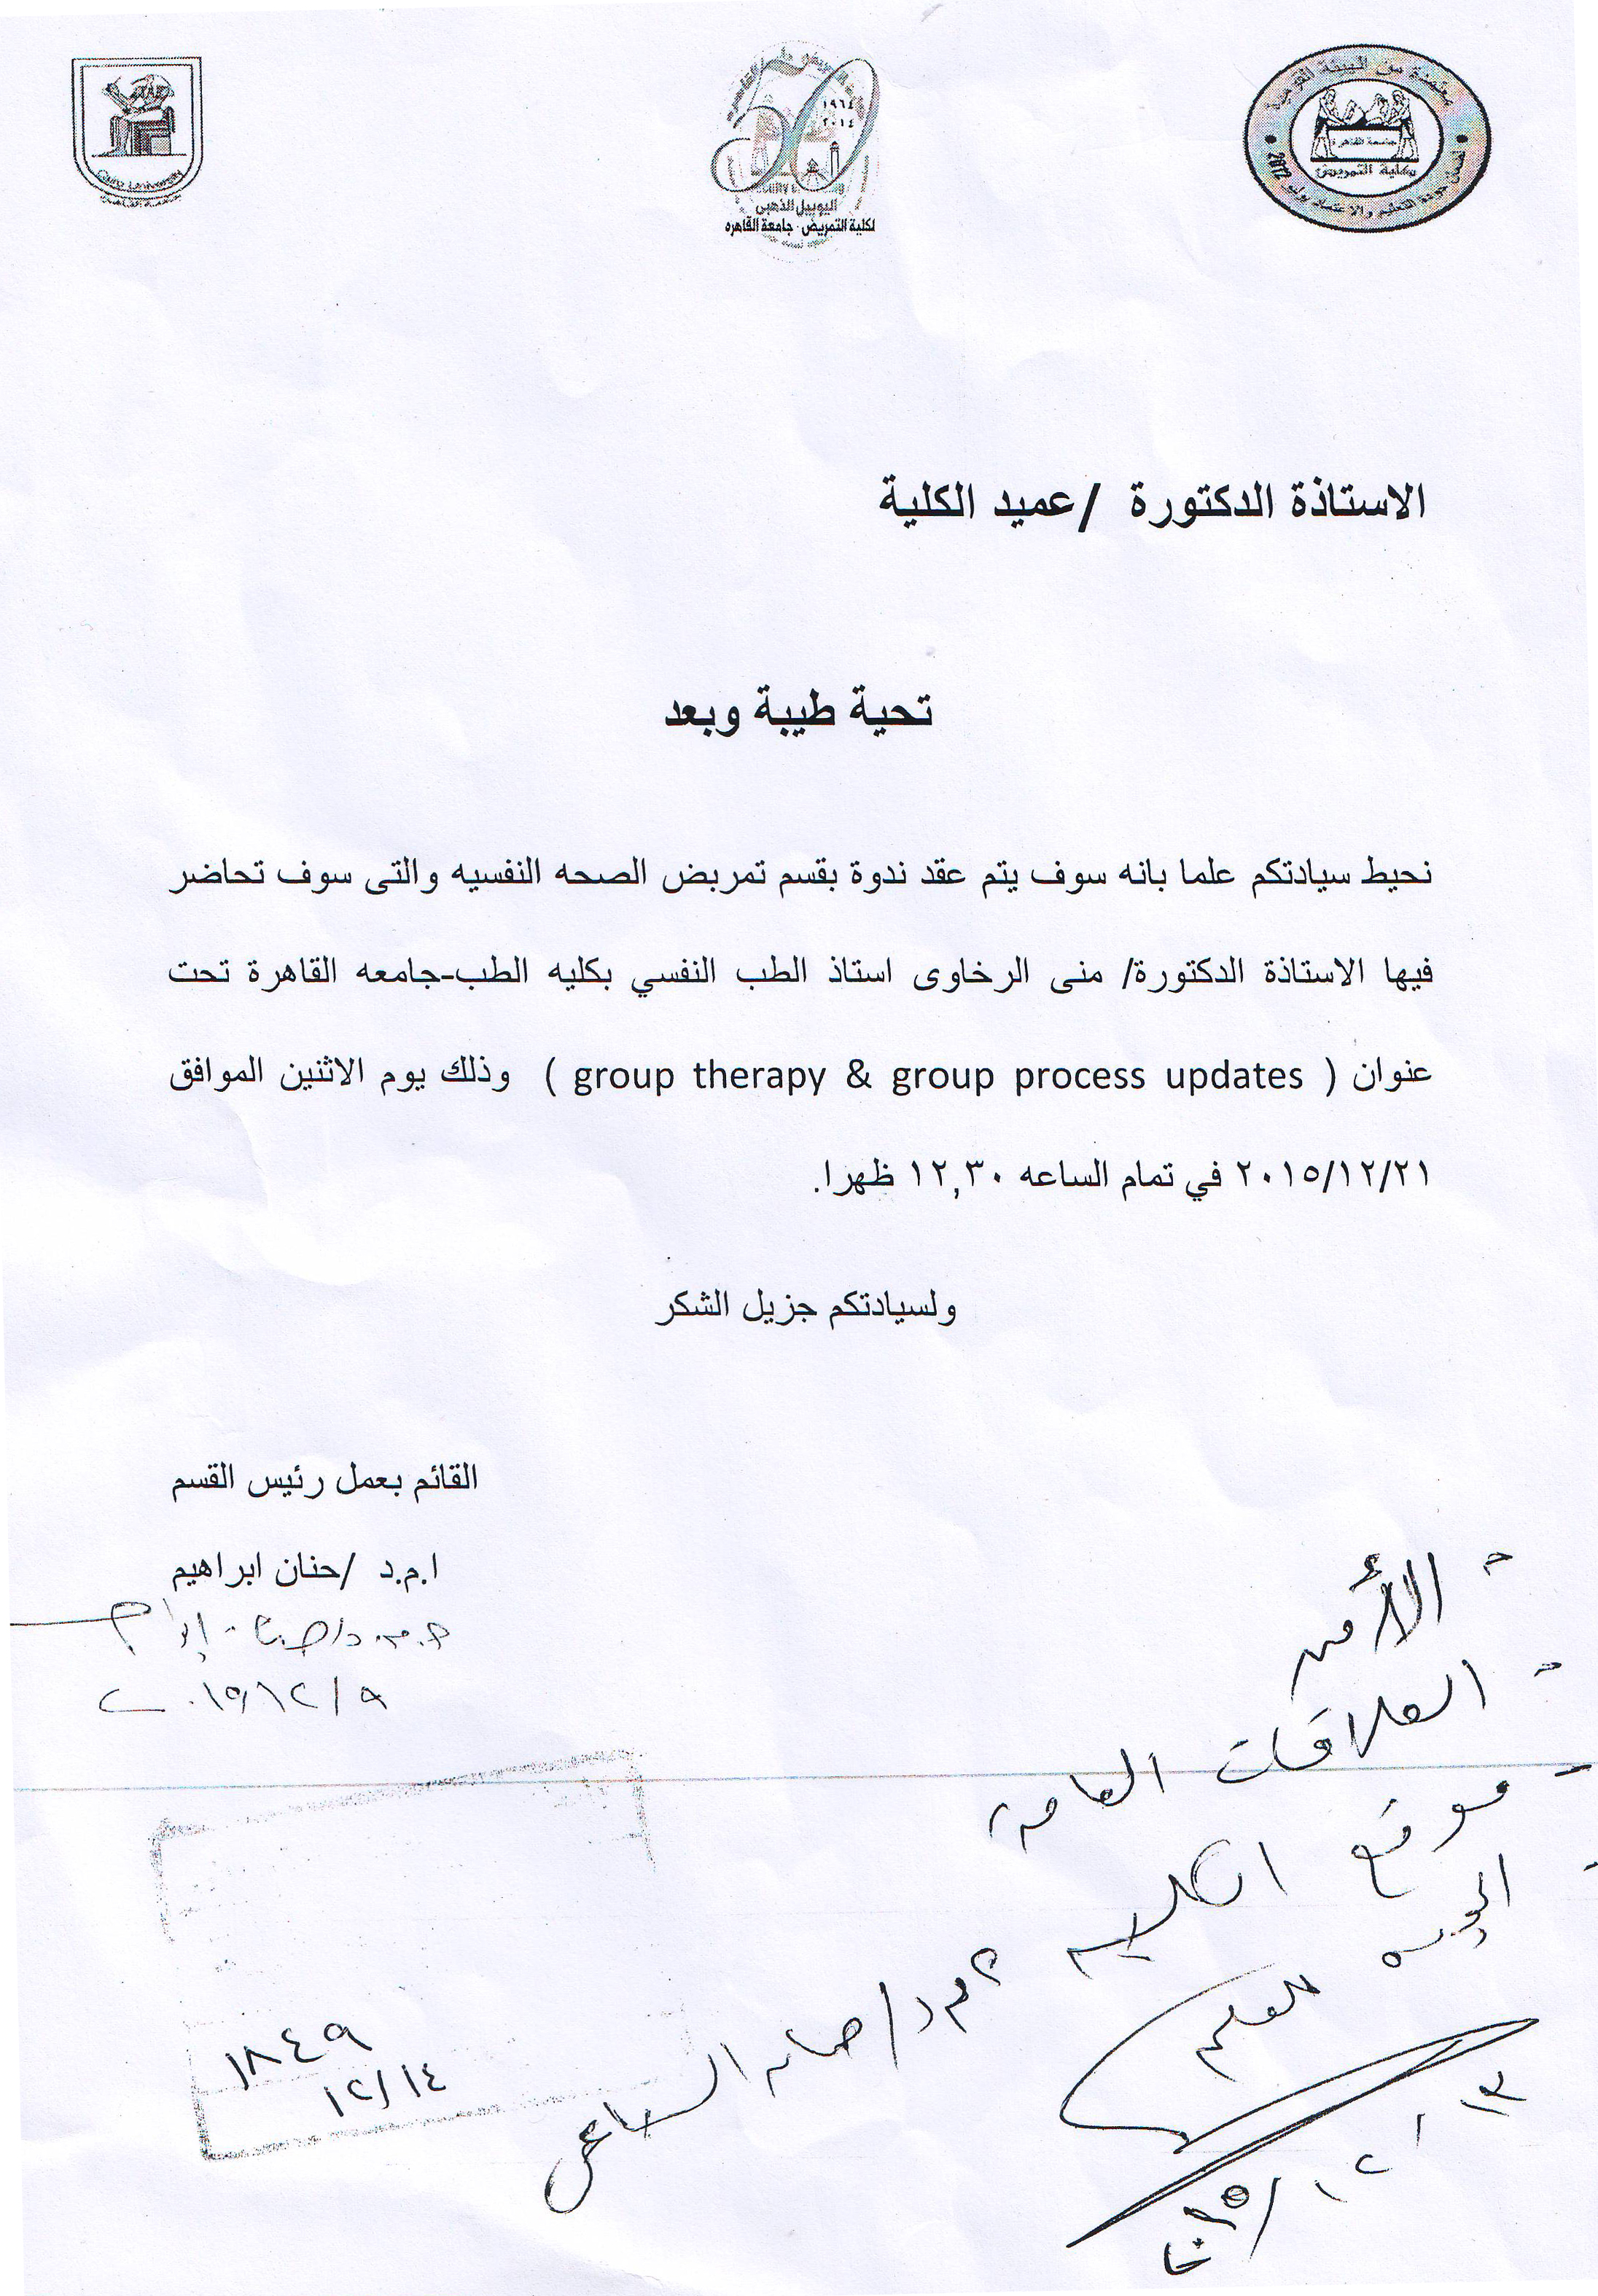 Cairo University
١٩٦٤
٢٠١٤
اليوبيل الذهبى
لكلية التمريض - جامعة القاهره
جامعة القاهرة
كلية التمريض
2012
الاستاذة الدكتورة /عميد الكلية
تحية طيبة وبعد
نحيط سيادتكم علما بانه سوف يتم عقد ندوة بقسم تمريض الصحه النفسيه والتى سوف تحاضر
فيها الاستاذة الدكتورة/ منى الرخاوى استاذ الطب النفسي بكليه الطب-جامعه القاهرة تحت
عنوان ( group therapy & group process updates ) وذلك يوم الاثنين الموافق
٢٠١٥/١٢/٢١ في تمام الساعه ١٢,٣٠ ظهرا.
ولسيادتكم جزيل الشكر
القائم بعمل رئيس القسم
ا.م.د /حنان ابراهيم
٢٠١٥/١٢/٩
- الأمن
- العلاقات العامة
- موقع الكلية
للعلم
٢٠١٥/١٢/١٣
١٨٤٩
١٢/١٤